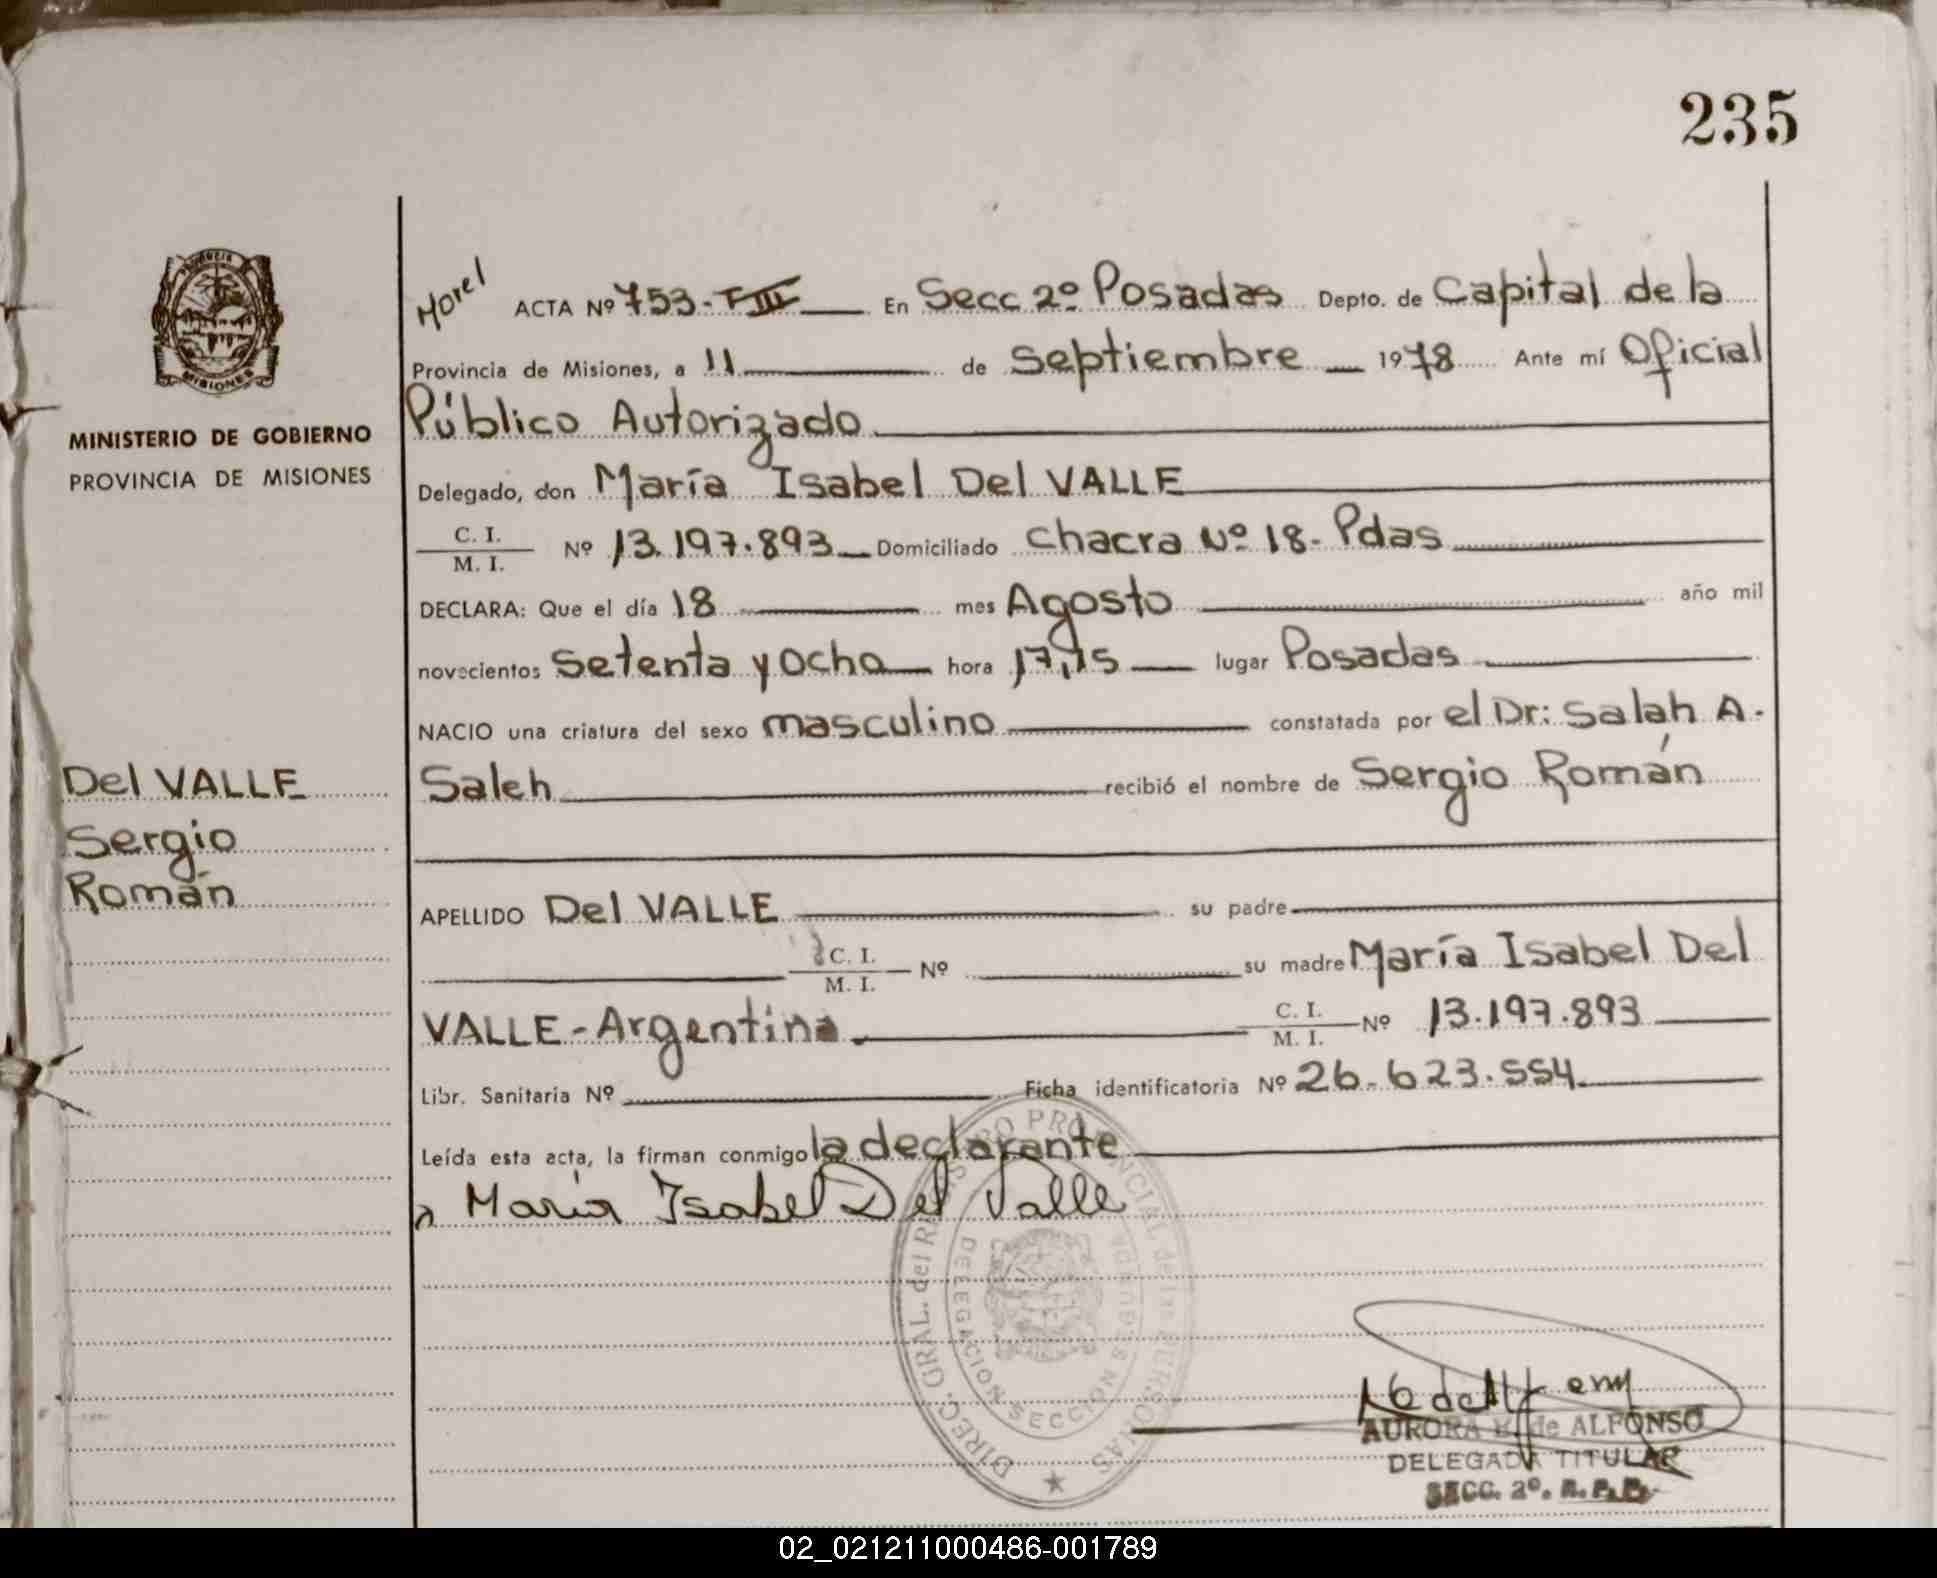 235
Morel ACTA Nº 753-T III En Secc 2º Posadas Depto. de Capital de la
Provincia de Misiones, a 11 de Septiembre 1978 Ante mí Oficial
Público Autorizado
MINISTERIO DE GOBIERNO
PROVINCIA DE MISIONES
MISIONES
Delegado, don María Isabel Del VALLE
C. I.
M. I. Nº 13.197.893 Domiciliado Chacra Nº 18- Pdas
DECLARA: Que el día 18 mes Agosto año mil
novecientos Setenta y Ocho hora 17,15 lugar Posadas
NACIO una criatura del sexo masculino constatada por el Dr: Salah A.
Saleh recibió el nombre de Sergio Román
Del VALLE
Sergio
Román
APELLIDO Del VALLE su padre
C. I.
M. I. Nº su madre María Isabel Del
VALLE - Argentina C. I.
M. I. Nº 13.197.893
Libr. Sanitaria Nº Ficha identificatoria Nº 26.623.554
Leída esta acta, la firman conmigo la declarante
María Isabel Del Valle
DIREC. GRAL. del REGISTRO PROVINCIAL de las PERSONAS
DELEGACION SECCION SEGUNDA
AURORA de ALFONSO
DELEGADA TITULAR
SECC. 2º. R.P.P.
02_021211000486-001789